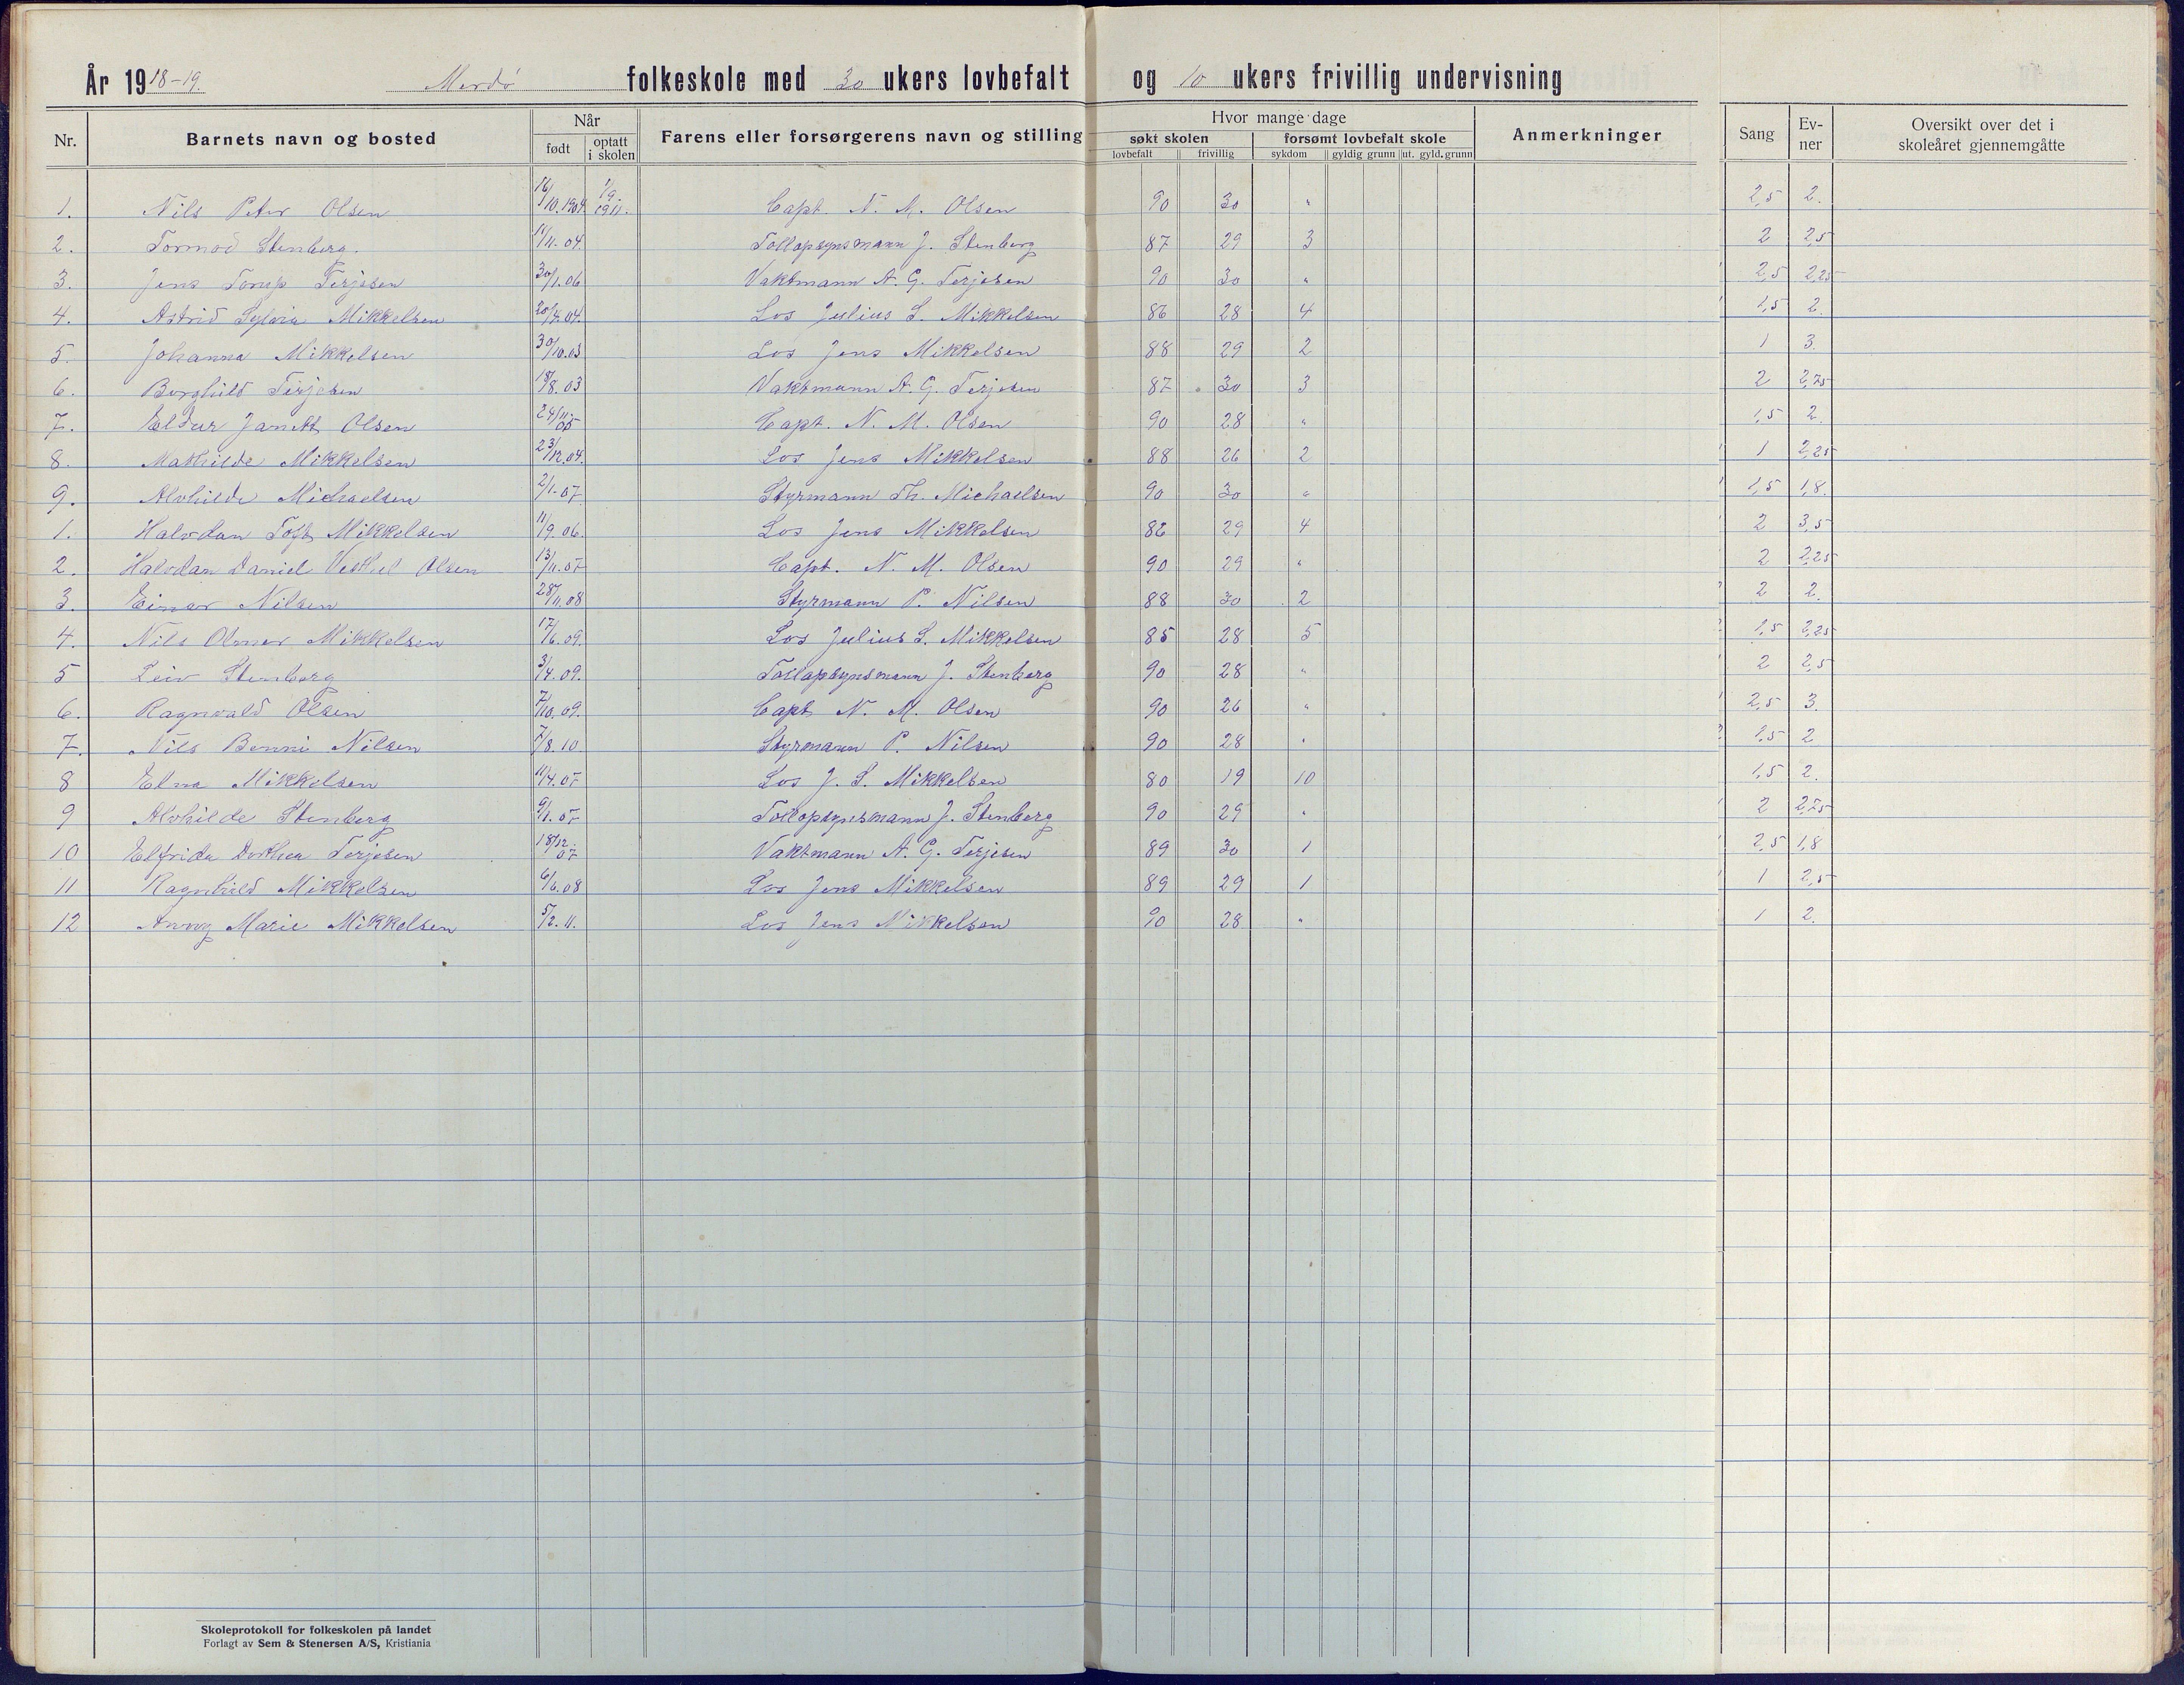 År 1918-19. Merdø folkeskole med 30 ukers lovbefalt og 10 ukers frivillig undervisning
Nr. Barnets navn og bosted Når født optatt i skolen Farens eller forsørgerens navn og stilling Hvor mange dage søkt skolen lovbefalt frivillig forsømt lovbefalt skole sykdom gyldig grunn ut. gyld. grunn Anmerkninger Sang Evner Oversikt over det i skoleåret gjennemgåtte
1. Nils Peter Olsen 16/10.1904. 1/9. 1911. Capt. N. M. Olsen 90 30 " 2,5 2.
2. Tormod Stenberg. 11/11.04. Tollopsynsmann J. Stenberg 87 29 3 2 2,5
3. Jens Torup Terjesen 30/1.06 Vaktmann A. G. Terjesen 90 30 " 2,5 2,25
4. Astrid Sylvia Mikkelsen 20/4.04. Los Julius S. Mikkelsen 86 28 4 1,5 2.
5. Johanna Mikkelsen 30/10.03 Los Jens Mikkelsen 88 29 2 1 3.
6. Borghild Terjesen 18/8.03 Vaktmann A. G. Terjesen 87 30 3 2 2,75
7. Eldur Janett Olsen 24/11.05 Capt. N. M. Olsen 90 28 " 1,5 2.
8. Mathilde Mikkelsen 23/12.04. Los Jens Mikkelsen 88 26 2 1 2,25
9. Alvhilde Michaelsen 2/1.07 Styrmann Th. Michaelsen 90 30 " 1,5 1,8.
1. Halvdan Toft Mikkelsen 11/9.06. Los Jens Mikkelsen 86 29 4 2 3,5
2. Halvdan Daniel Vesthel Olsen 13/11.07 Capt. N. M. Olsen 90 29 " 2 2,25
3. Einar Nilsen 28/11.08 Styrmann P. Nilsen 88 30 2 2 2.
4. Nils Olmer Mikkelsen 17/6.09. Los Julius S. Mikkelsen 85 28 5 1,5 2,25
5 Leiv Stenberg 3/4.09. Tollopsynsmann J. Stenberg 90 28 " 2 2,5
6. Ragnvald Olsen 7/10.09. Capt N. M. Olsen 90 26 " 2,5 3.
7. Nils Benni Nilsen 7/8.10 Styrmann P. Nilsen 90 28 " 1,5 2
8 Elna Mikkelsen 11/4.05 Los J. S. Mikkelsen 80 19 10 1,5 2.
9 Alvhilde Stenberg 9/1.07 Tollopsynsmann J. Stenberg 90 29 " 2 2,75
10 Elfrida Dorthea Terjesen 18/12.07 Vaktmann A. G. Terjesen 89 30 1 2,5 1,8
11 Ragnhild Mikkelsen 6/6.08 Los Jens Mikkelsen 89 29 1 1 2,5
12 Anny Marie Mikkelsen 5/2.11. Los Jens Mikkelsen 90 28 " 1 2.
Skoleprotokoll for folkeskolen på landet
Forlagt av Sem & Stenersen A/S, Kristiania